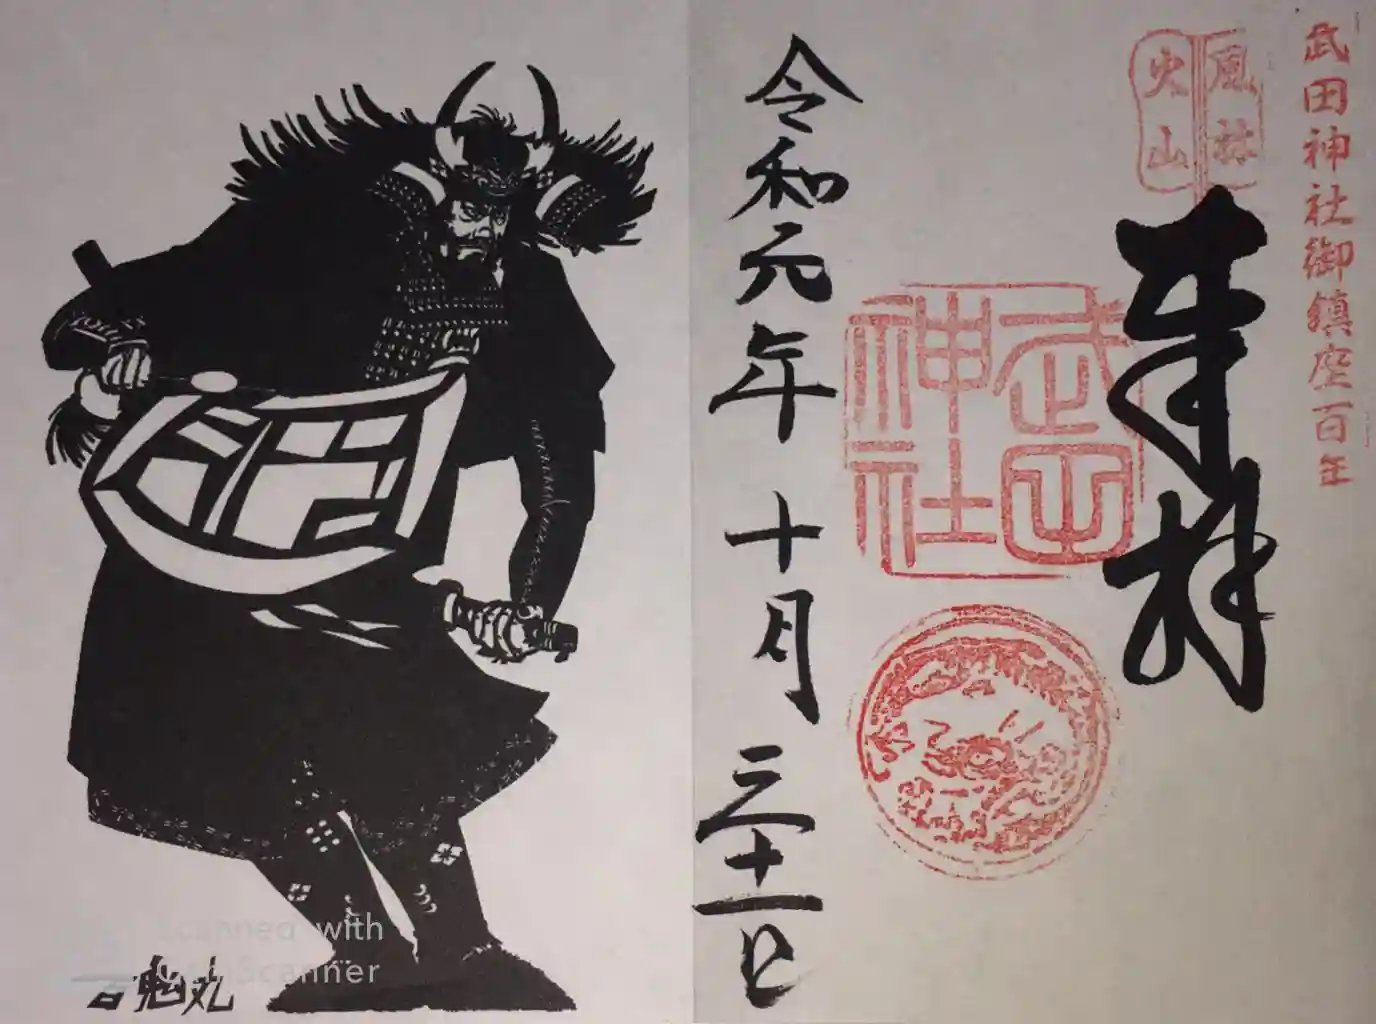 武田神社御鎮座百年
風林
火山
奉拝
武田
神社
令和元年十月三十一日
百鬼丸
Scanned with
CamScanner